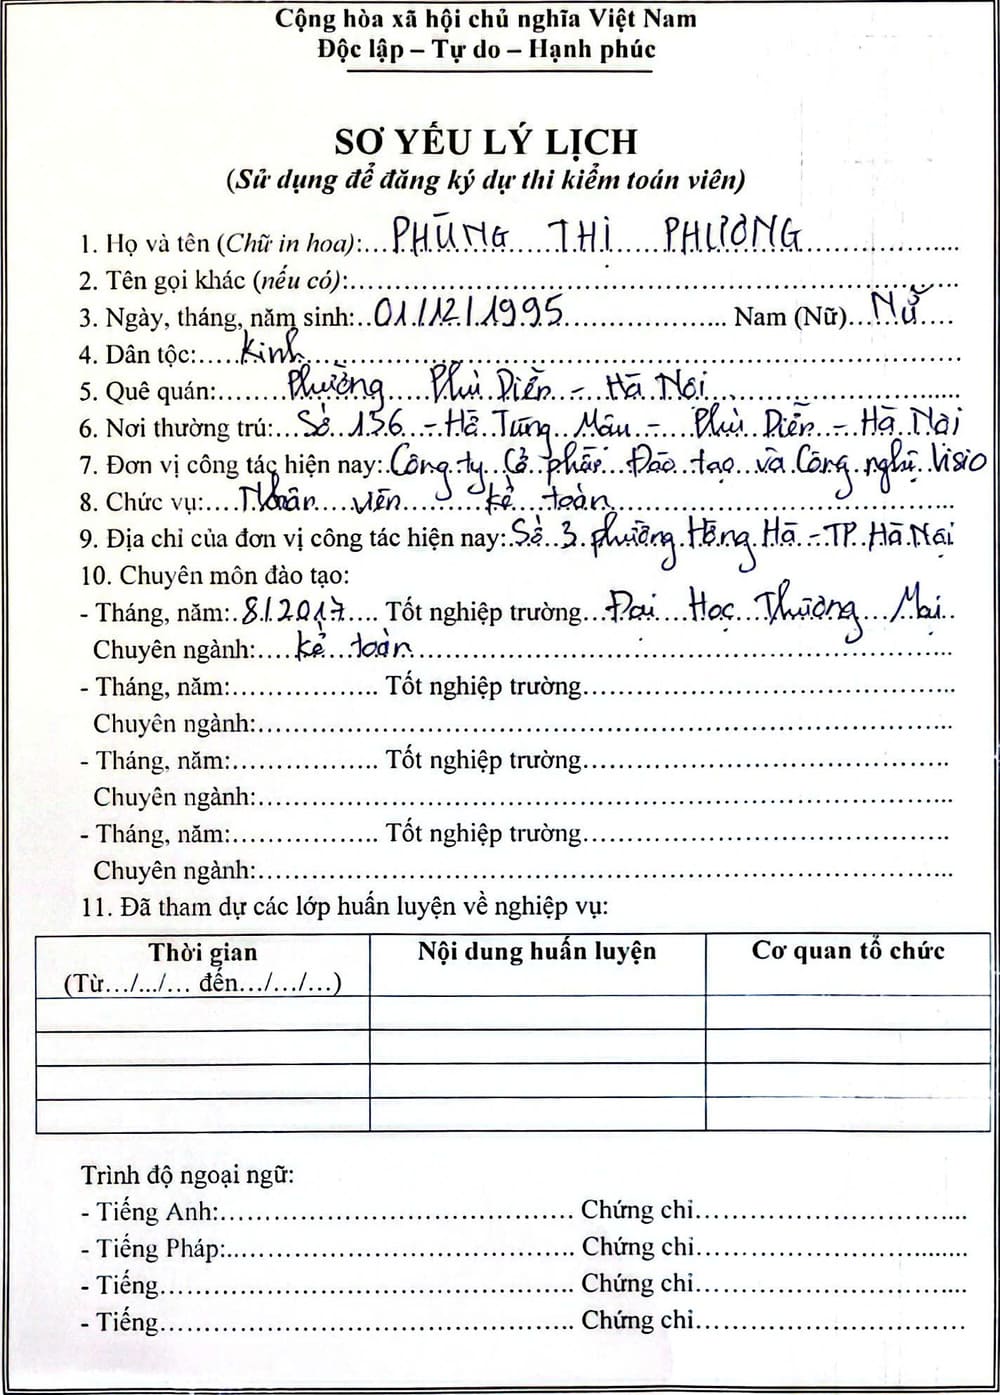 Cộng hòa xã hội chủ nghĩa Việt Nam
Độc lập – Tự do – Hạnh phúc
SƠ YẾU LÝ LỊCH
(Sử dụng để đăng ký dự thi kiểm toán viên)
1. Họ và tên (Chữ in hoa):... PHÙNG THỊ PHƯƠNG
2. Tên gọi khác (nếu có):
3. Ngày, tháng, năm sinh:..01/12/1995 Nam (Nữ)...Nữ
4. Dân tộc:.....Kinh
5. Quê quán:.......Phường Phú Diễn - Hà Nội
6. Nơi thường trú:...Số 156 - Hồ Tùng Mậu - Phú Diễn - Hà Nội
7. Đơn vị công tác hiện nay: Công ty Cổ phần Đào tạo và Công nghệ Visio
8. Chức vụ:....Nhân viên kế toán
9. Địa chỉ của đơn vị công tác hiện nay: Số 3 phường Hồng Hà - TP Hà Nội
10. Chuyên môn đào tạo:
- Tháng, năm:.8/2017.... Tốt nghiệp trường...Đại Học Thương Mại
Chuyên ngành:....kế toán
- Tháng, năm:................ Tốt nghiệp trường
Chuyên ngành:
- Tháng, năm:................ Tốt nghiệp trường
Chuyên ngành:
- Tháng, năm:................ Tốt nghiệp trường
Chuyên ngành:
11. Đã tham dự các lớp huấn luyện về nghiệp vụ:
Thời gian Nội dung huấn luyện Cơ quan tổ chức
(Từ.../.../... đến.../.../...)
Trình độ ngoại ngữ:
- Tiếng Anh:........................ Chứng chỉ
- Tiếng Pháp:........................ Chứng chỉ
- Tiếng........................ Chứng chỉ
- Tiếng........................ Chứng chỉ